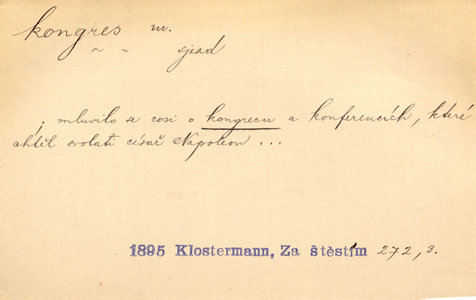 kongres m.
~ = sjezd
; mluvilo se cosi o kongresu a konferencích, které
chtěl svolati císař Napoleon ...
1895 Klostermann, Za štěstím 272, 3.